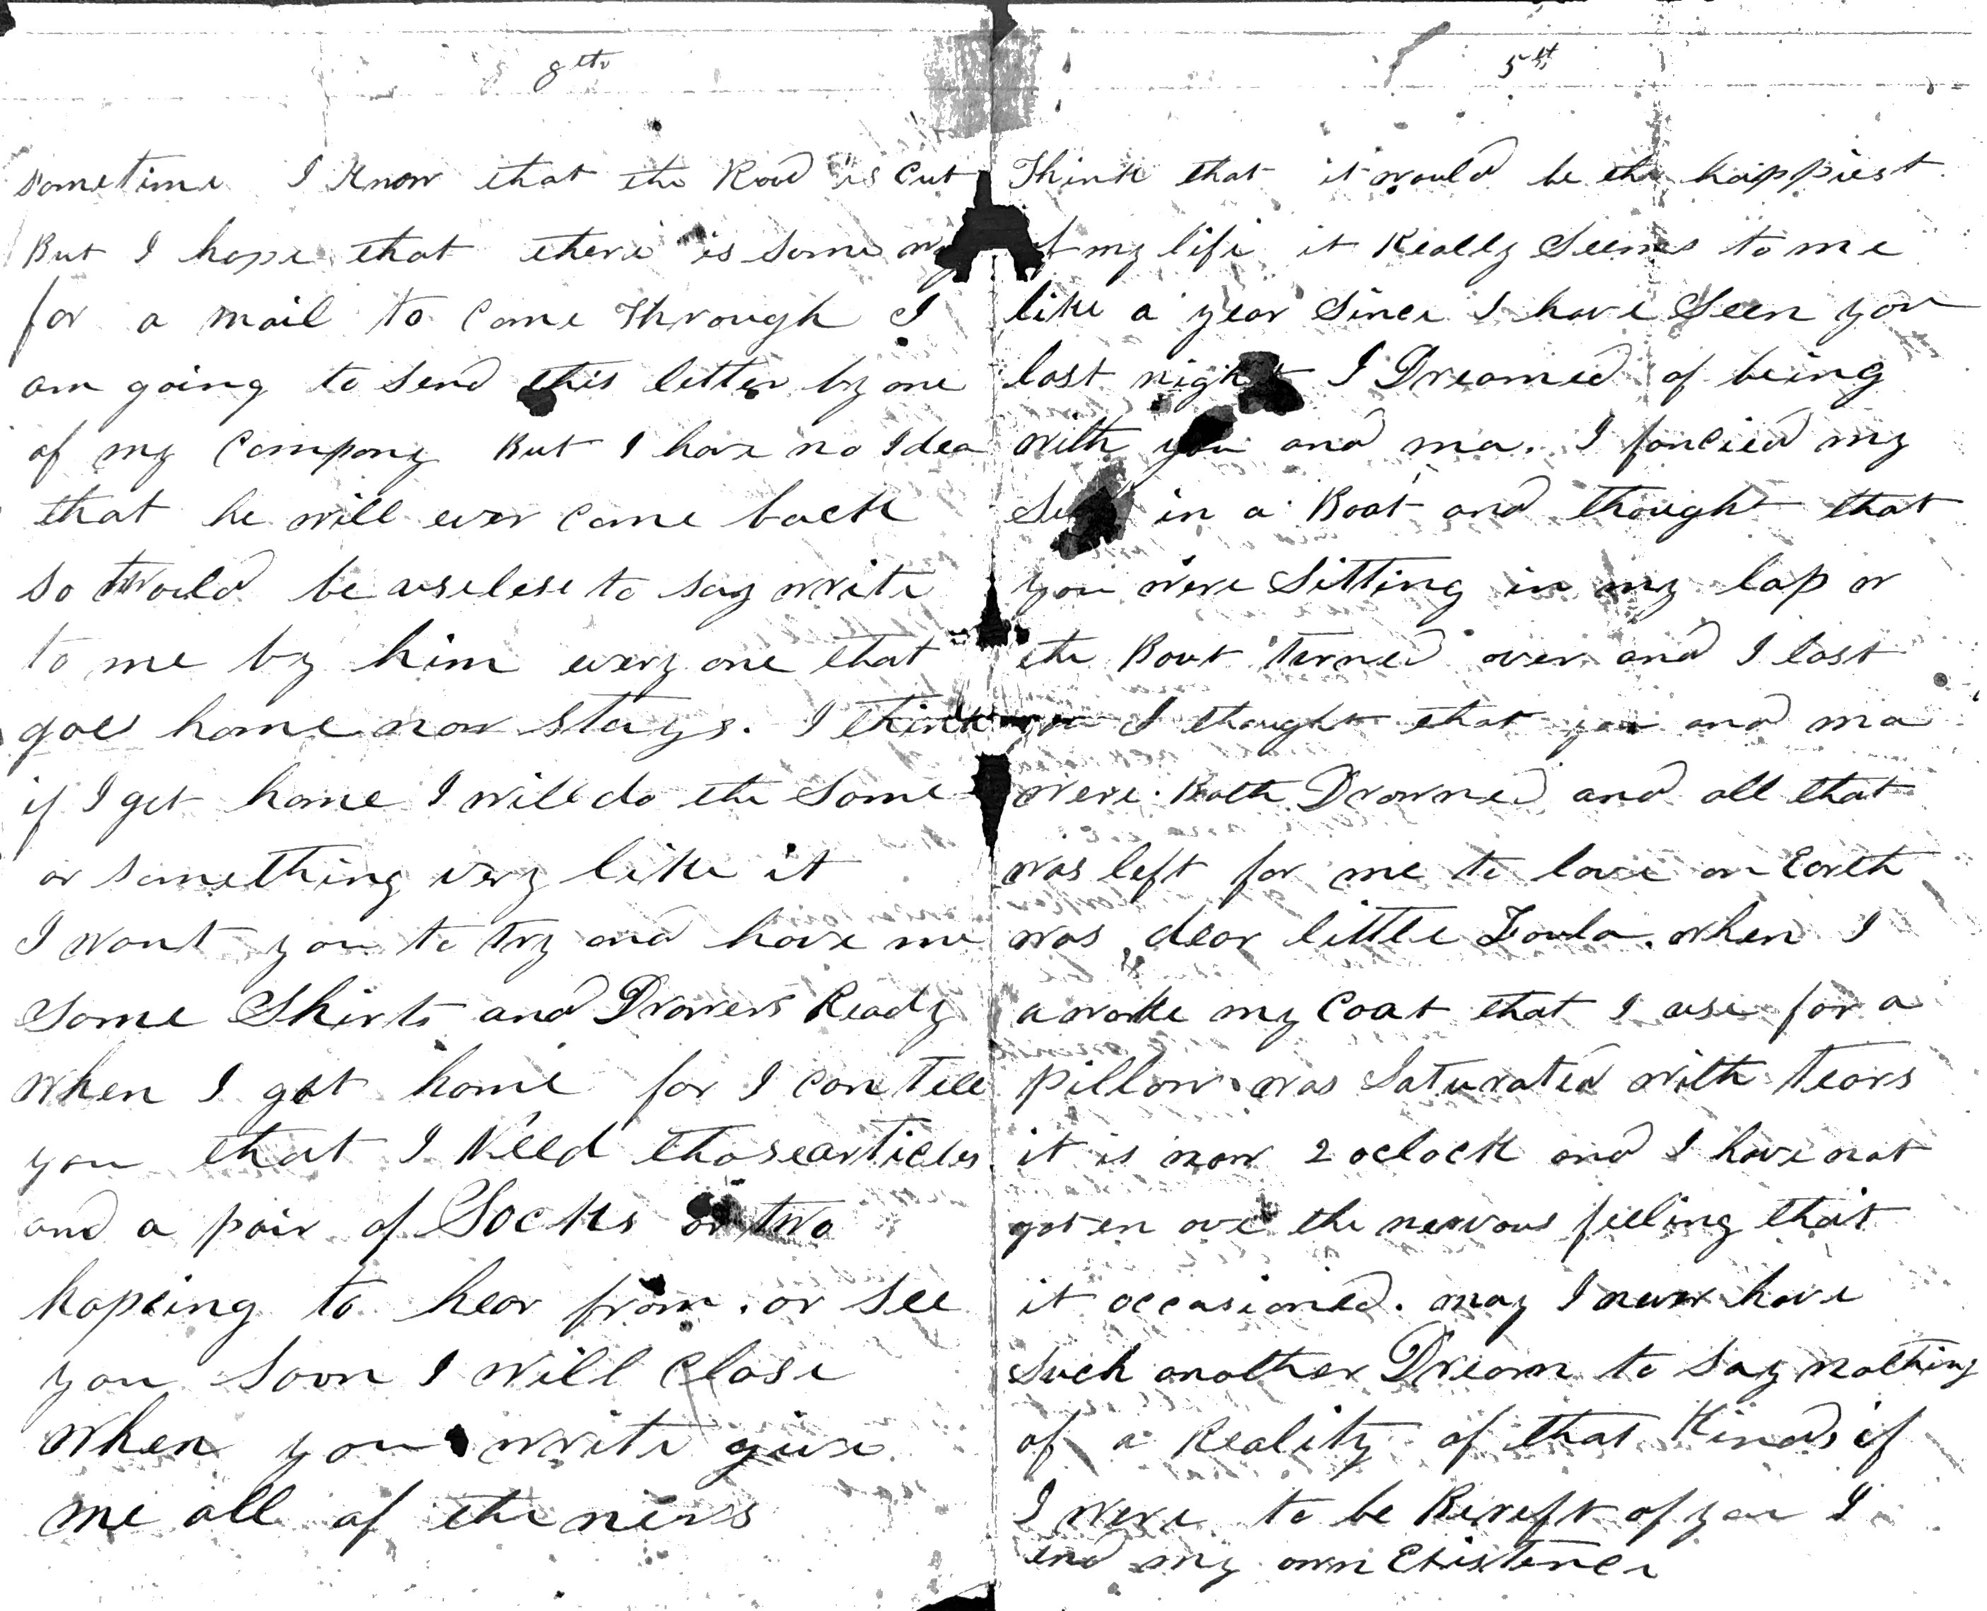 8th
sometime I Know that the Road is Cut
But I hope that there is some
for a mail to Come Through I
am going to send this letter by one
of my Company But I have no Idea
that he will ever Come back
so Would be useless to say write
to me by him every one that
goes home now stays. I think
if I get home I will do the same
or something very like it
I want you to try and have me
some Shirts and Drawers Ready
when I get home for I can tell
you that I Need those articles
and a pair of Socks or two
hopeing to hear from. or see
you soon I will close
When you write give
me all of the news
5th
Think that it would be the happiest
of my life it Really Seems to me
like a year Since I have Seen you
last night I Dreamed of being
with you and ma. I fancied my
in a Boat and thought that
you were Sitting in my lap
the Boat turned over and I lost
you I thought that you and ma
were Both Drowned and all that
was left for me to love on Earth
was dear little Loula. when I
awoke my Coat that I use for a
pillow was Saturated with tears
it is now 2 oclock and I have not
goten ove the nervous feeling that
it occasioned. may I never have
Such another Dream to say nothing
of a Reality of that Kind if
I were to be Bereft of you I
end my own Existence